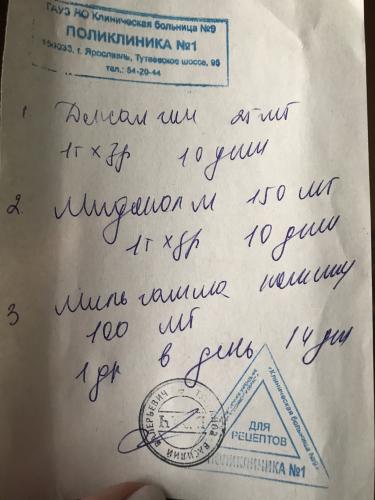 ГАУЗ ЯО Клиническая больница №9
ПОЛИКЛИНИКА №1
150033, г. Ярославль, Тутаевское шоссе, 95
тел.: 54-20-44
1 Дексалгин 25 мг
1т х 3р 10 дней
2. Мидокалм 150 мг
1т х 3р 10 дней
3 Мильгамма
100 мг
1 др в день 14 дн
«Клиническая больница №9»
ДЛЯ
РЕЦЕПТОВ
ПОЛИКЛИНИКА №1
ВАСИЛИЙ ВАЛЕРЬЕВИЧ